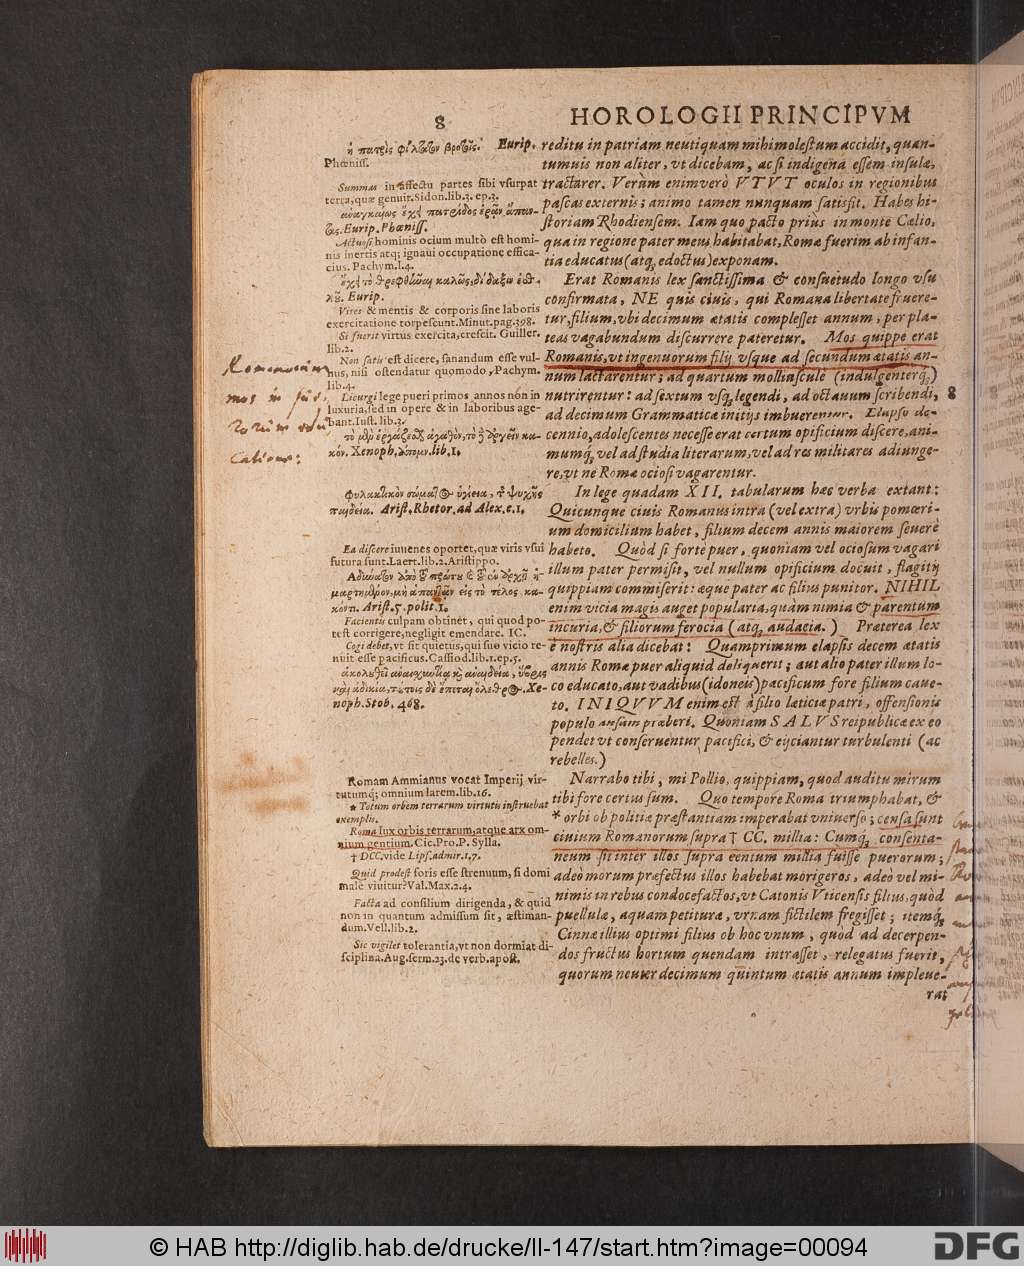 8
HOROLOGII PRINCIPVM
ἡ πατρὶς φίλτατον βροτοῖς. Eurip.
Phœniss.
Summas in affectu partes sibi vsurpat
terra, quæ genuit. Sidon. lib. 3. ep. 3.
ἀναγκαίως ἔχει πατρίδος ἐρᾷν ἅπαν-
τας. Eurip. Phœniss.
Actuosi hominis ocium multò est homi-
nis inertis atq; ignaui occupatione effica-
cius. Pachym. l. 4.
Eurip.
Vires & mentis & corporis sine laboris
exercitatione torpescunt. Minut. pag. 398.
Si fuerit virtus exercita, crescit. Guiller.
lib. 2.
Non satis est dicere, sanandum esse vul-
nus, nisi ostendatur quomodo, Pachym.
lib. 4.
Licurgi lege pueri primos annos non in
luxuria, sed in opere & in laboribus age-
bant. Iust. lib. 3.
κόν. Xenoph. ἀπομν. lib. 1.
φυλακτικὸν σώματος ὑγίεια, ψυχῆς
παιδεία. Arist. Rhetor. ad Alex. c. 1.
Ea discere iuuenes oportet, quæ viris vsui
futura sunt. Laert. lib. 2. Aristippo.
Arist. 5. polit. 1.
Facientis culpam obtinet, qui quod po-
test corrigere, negligit emendare. IC.
Cogi debet, vt sit quietus, qui suo vicio re-
nuit esse pacificus. Cassiod. lib. 1. ep. 5.
Xe-
noph. Stob. 468.
Romam Ammianus vocat Imperij vir-
tutumq; omnium larem. lib. 16.
* Totum orbem terrarum virtutis instruebat
exemplis.
Roma lux orbis terrarum, atque arx om-
nium gentium. Cic. Pro. P. Sylla.
† DCC. vide Lips. admir. 1, 7.
Quid prodest foris esse strenuum, si domi
malè viuitur? Val. Max. 2. 4.
Facta ad consilium dirigenda, & quid
non in quantum admissum sit, æstiman-
dum. Vell. lib. 2.
Sic vigilet tolerantia, vt non dormiat di-
sciplina. Aug. serm. 23. de verb. apost.
Romanorum
mos in
cation
reditu in patriam neutiquam mihi molestum accidit, quan-
tumuis non aliter, vt dicebam, ac si indigena essem insulæ,
tractarer. Verùm enimverò VTVT oculos in regionibus
pascas externis; animo tamen nunquam satisfit. Habes hi-
storiam Rhodiensem. Iam quo pacto priùs in monte Cælio,
qua in regione pater meus habitabat, Romæ fuerim ab infan-
tia educatus (atq; edoctus) exponam.
Erat Romanis lex sanctissima & consuetudo longo vsu
confirmata, NE quis ciuis, qui Romana libertate frueretur,
tur, filium, vbi decimum ætatis complesset annum, per pla-
teas vagabundum discurrere pateretur. Mos quippe erat
Romanis, vt ingenuorum filij vsque ad secundum ætatis an-
num lactarentur; ad quartum molliusculè (indulgenterq;)
nutrirentur: ad sextum vsq; legendi, ad octauum scribendi, 8
ad decimum Grammaticæ initijs imbuerentur. Elapso de-
cennio, adolescentes necesse erat certum opificium discere, ani-
mumq; vel ad studia literarum, vel ad res militares adiunge-
re, vt ne Romæ ociosi vagarentur.
In lege quadam XII. tabularum hæc verba extant:
Quicunque ciuis Romanus intra (vel extra) vrbis pomœri-
um domicilium habet, filium decem annis maiorem seuerè
habeto. Quòd si forte puer, quoniam vel ociosum vagari
illum pater permisit, vel nullum opificium docuit, flagitij
quippiam commiserit: æque pater ac filius punitor. NIHIL
enim vicia magis auget popularia, quàm nimia & parentum
incuria, & filiorum ferocia (atq; audacia.) Præterea lex
è nostris alia dicebat: Quamprimum elapsis decem ætatis
annis Romæ puer aliquid deliquerit; aut alio pater illum lo-
co educato, aut vadibus (idoneis) pacificum fore filium caue-
to. INIQVVM enim est à filio læticiæ patri, offensionis
populo ansam præberi. Quoniam SALVS reipublicæ ex eo
pendet vt conseruentur pacifici, & eijciantur turbulenti (ac
rebelles.)
Narrabo tibi, mi Pollio, quippiam, quod auditu mirum
tibi fore certus sum. Quo tempore Roma triumphabat, &
* orbi ob politiæ præstantiam imperabat vniuerso; censa sunt
ciuium Romanorum supra † CC. millia: Cumq; consenta-
neum sit inter illos supra centum millia fuisse puerorum;
adeò morum præfectus illos habebat morigeros, adeò vel mi-
nimis in rebus condocefactos, vt Catonis Vticensis filius, quòd
puellulæ, aquam petituræ, vrnam fictilem fregisset; itemq;
Cinnæ illius optimi filius ob hoc vnum, quòd ad decerpen-
dos fructus hortum quendam intrasset, relegatus fuerit,
quorum neuter decimum quintum ætatis annum impleue-
rat
© HAB http://diglib.hab.de/drucke/ll-147/start.htm?image=00094
DFG